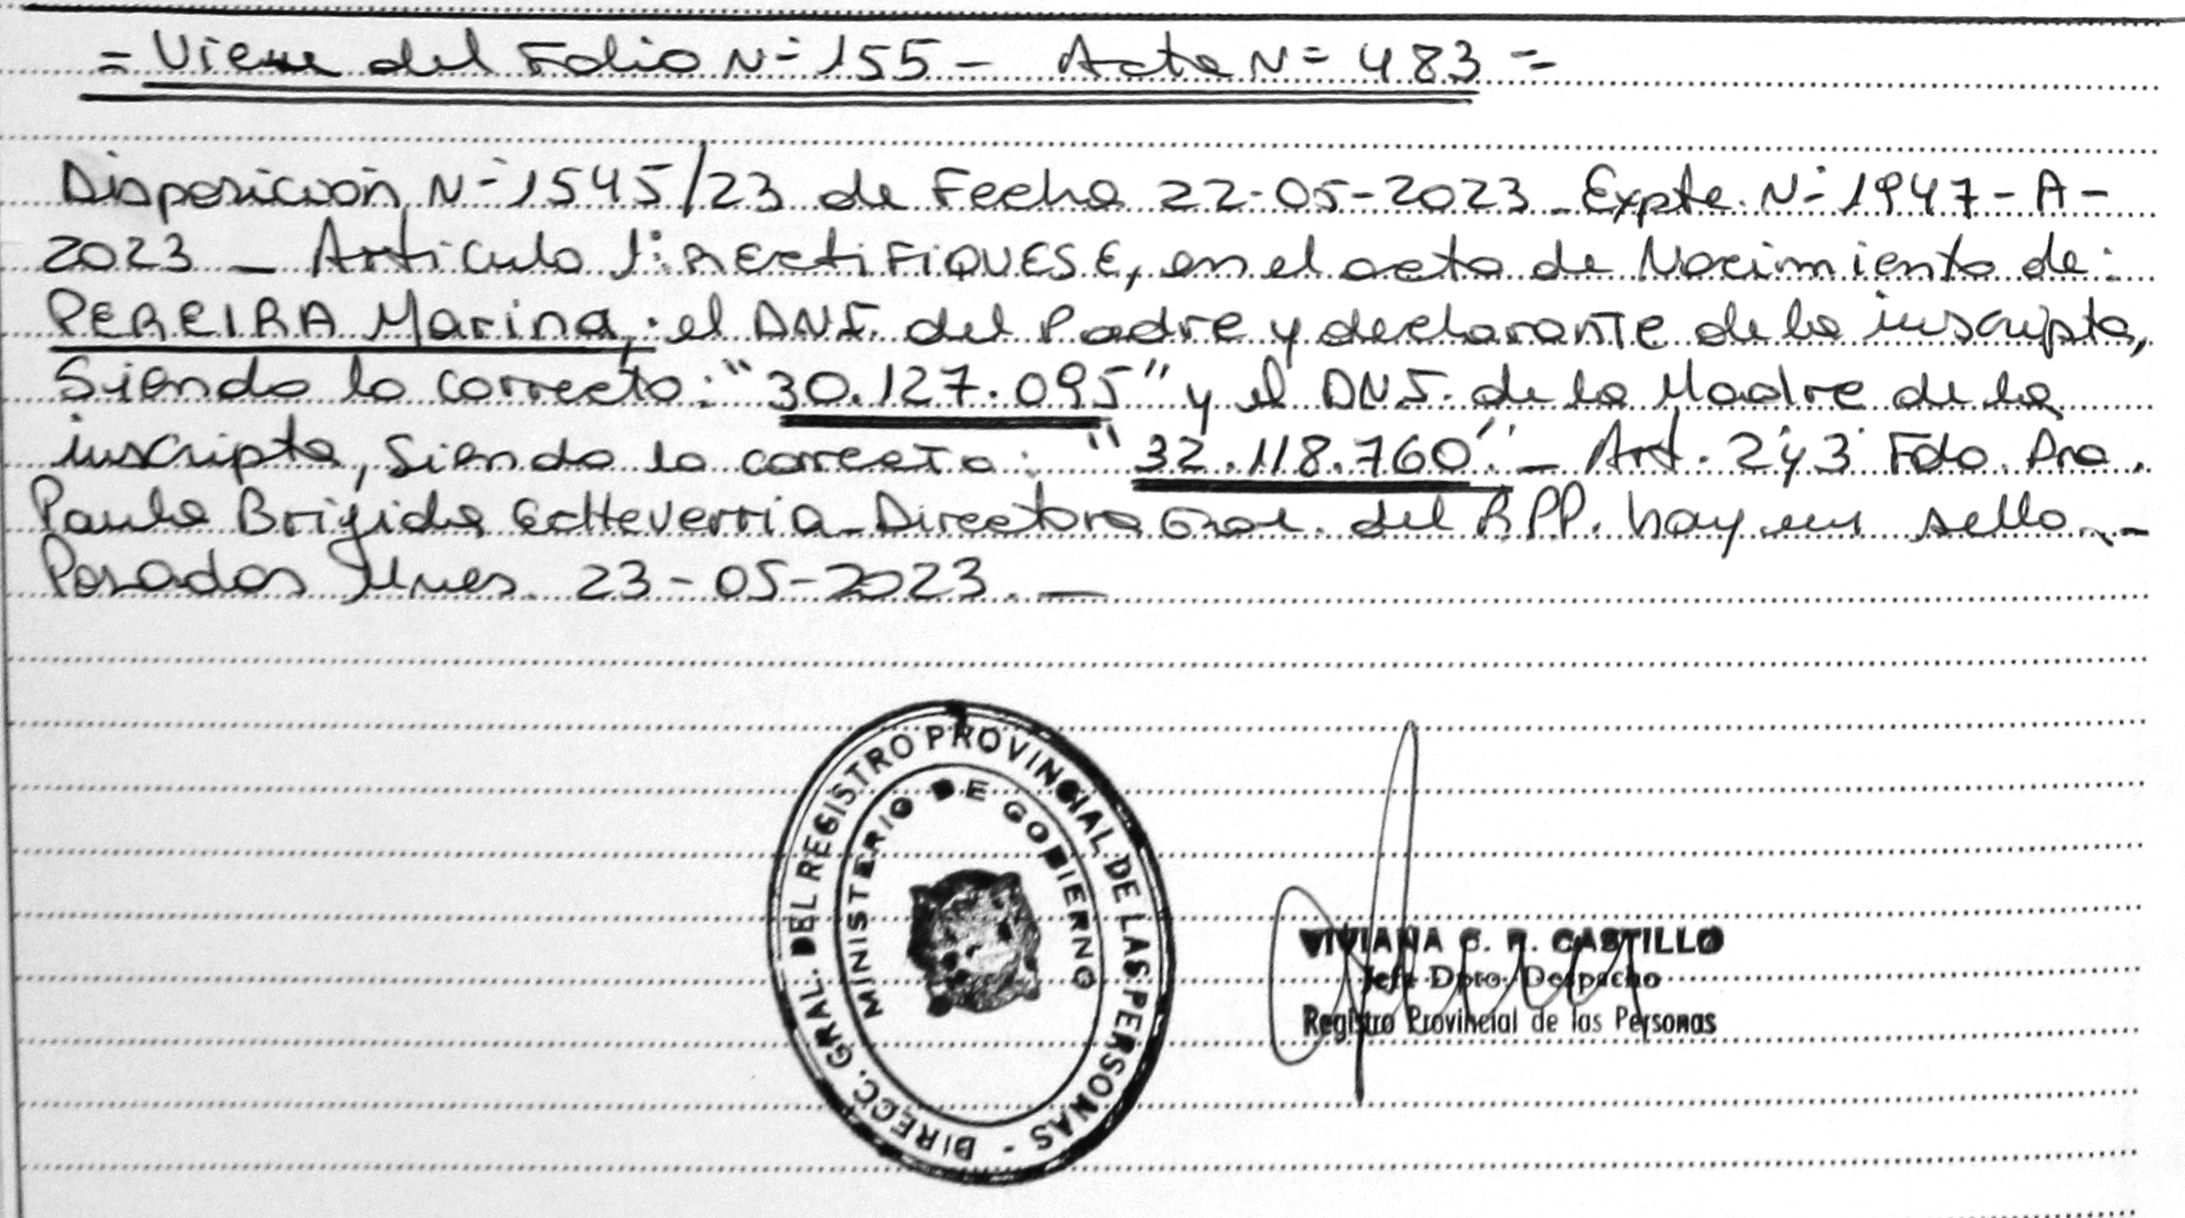 = Viene del Folio N- 155 - Acta N= 483 =
Disposición N- 1545/23 de Fecha 22-05-2023 - Expte. N- 1947 - A -
2023 - Artículo 1: RECtiFiQUESE, en el acta de Nacimiento de:
PEREIRA Marina; el DNI. del Padre y declarante de la inscripta,
Siendo lo correcto: "30.127.095" y el DNI. de la Madre de la
inscripta, Siendo lo correcto: "32.118.760". - Art. 2 y 3 Fdo. Dra.
Paula Brigida Echeverria - Directora Gral. del RPP. hay un sello. -
Posadas Mnes. 23 - 05 - 2023. -
DIRECC. GRAL. DEL REGISTRO PROVINCIAL DE LAS PERSONAS -
MINISTERIO DE GOBIERNO
VIVIANA CASTILLO
Jefe Dpto. Despacho
Registro Provincial de las Personas